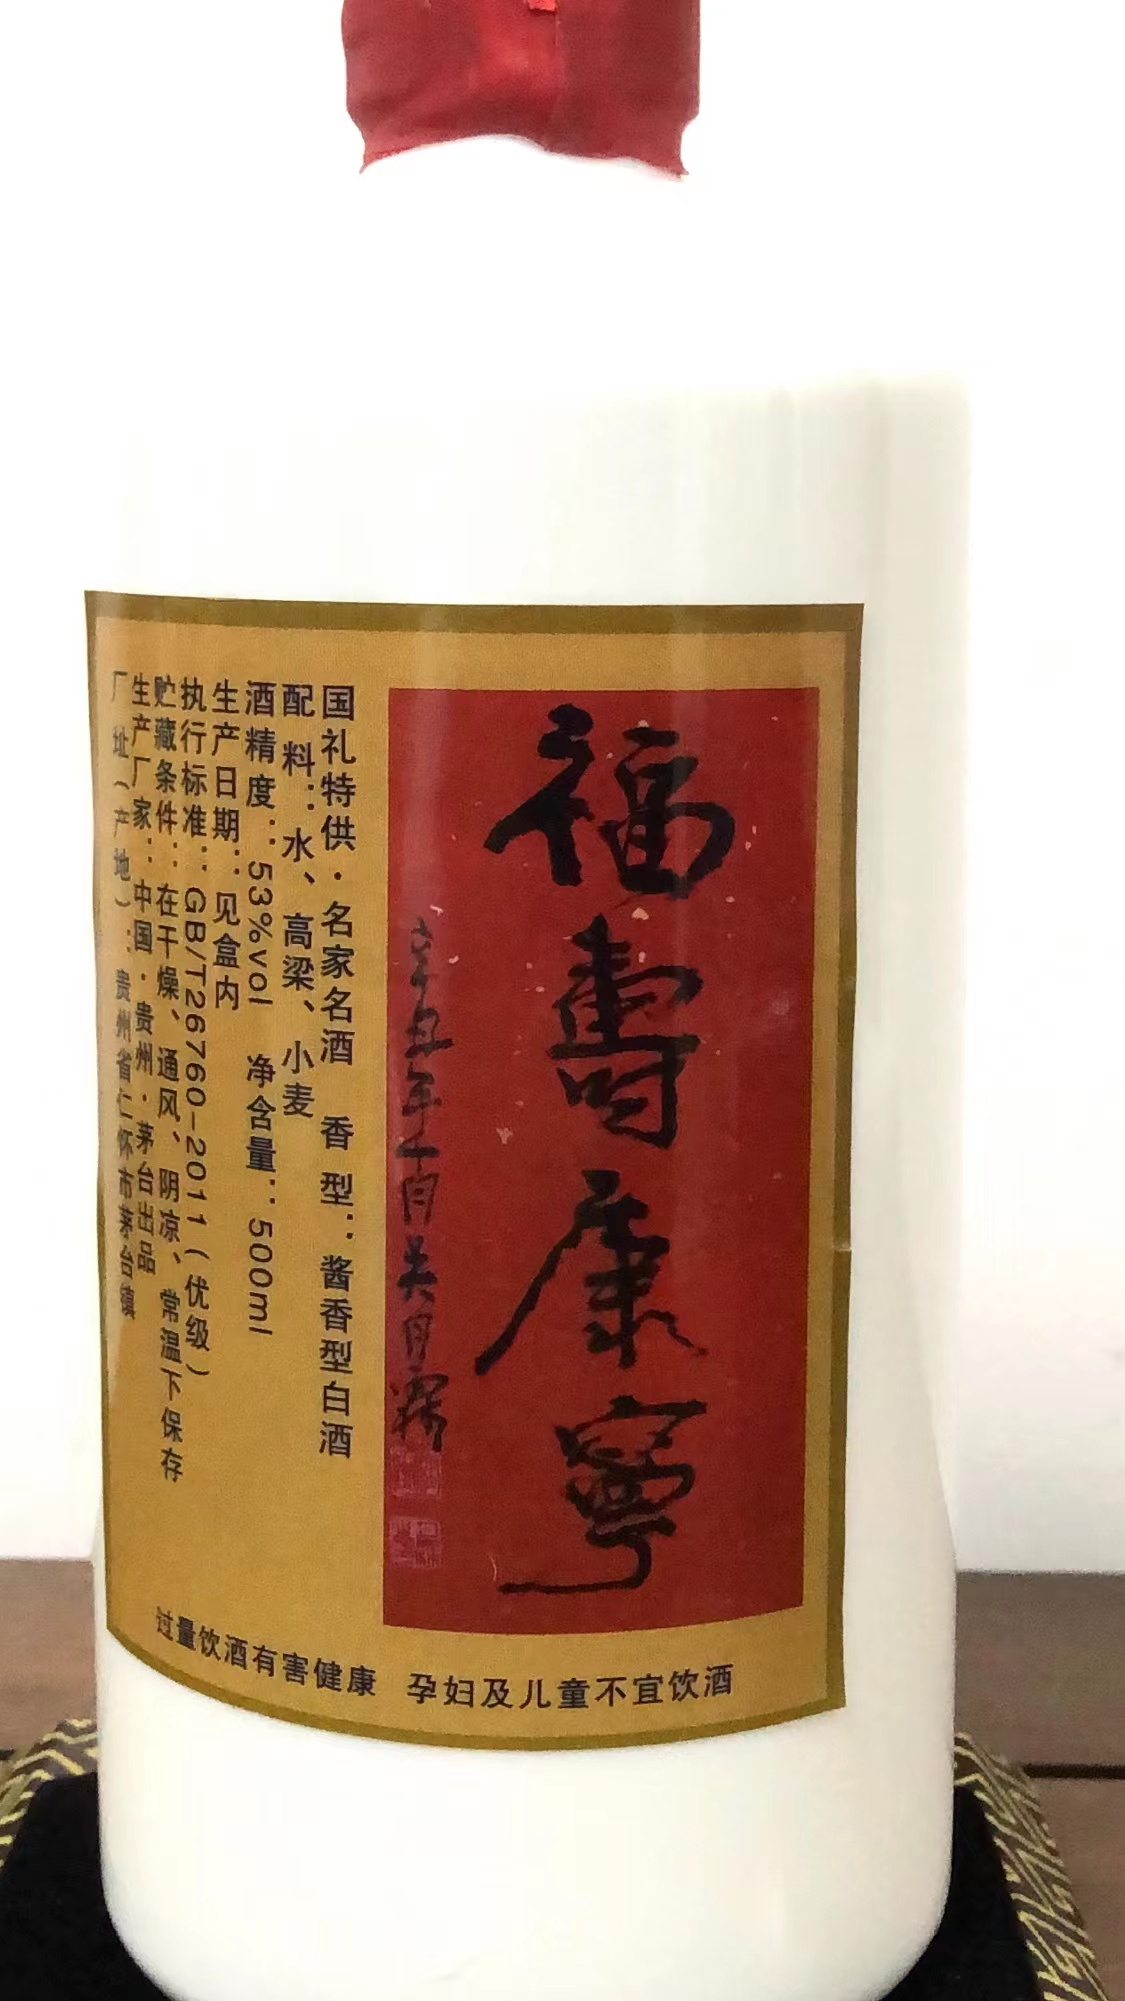 福壽康寧
辛丑年
国礼特供·名家名酒 香型：酱香型白酒
配料：水、高梁、小麦
酒精度：53%vol 净含量：500ml
生产日期：见盒内
执行标准：GB/T26760-2011（优级）
贮藏条件：在干燥、通风、阴凉、常温下保存
生产厂家：中国·贵州·茅台出品
厂址（产地）：贵州省仁怀市茅台镇
过量饮酒有害健康 孕妇及儿童不宜饮酒